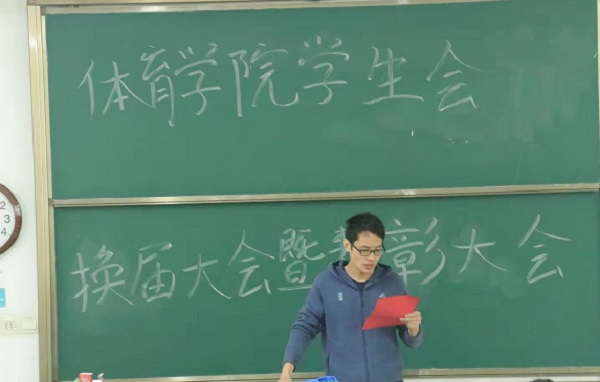 体育学院学生会
换届大会暨表彰大会
2
3
4